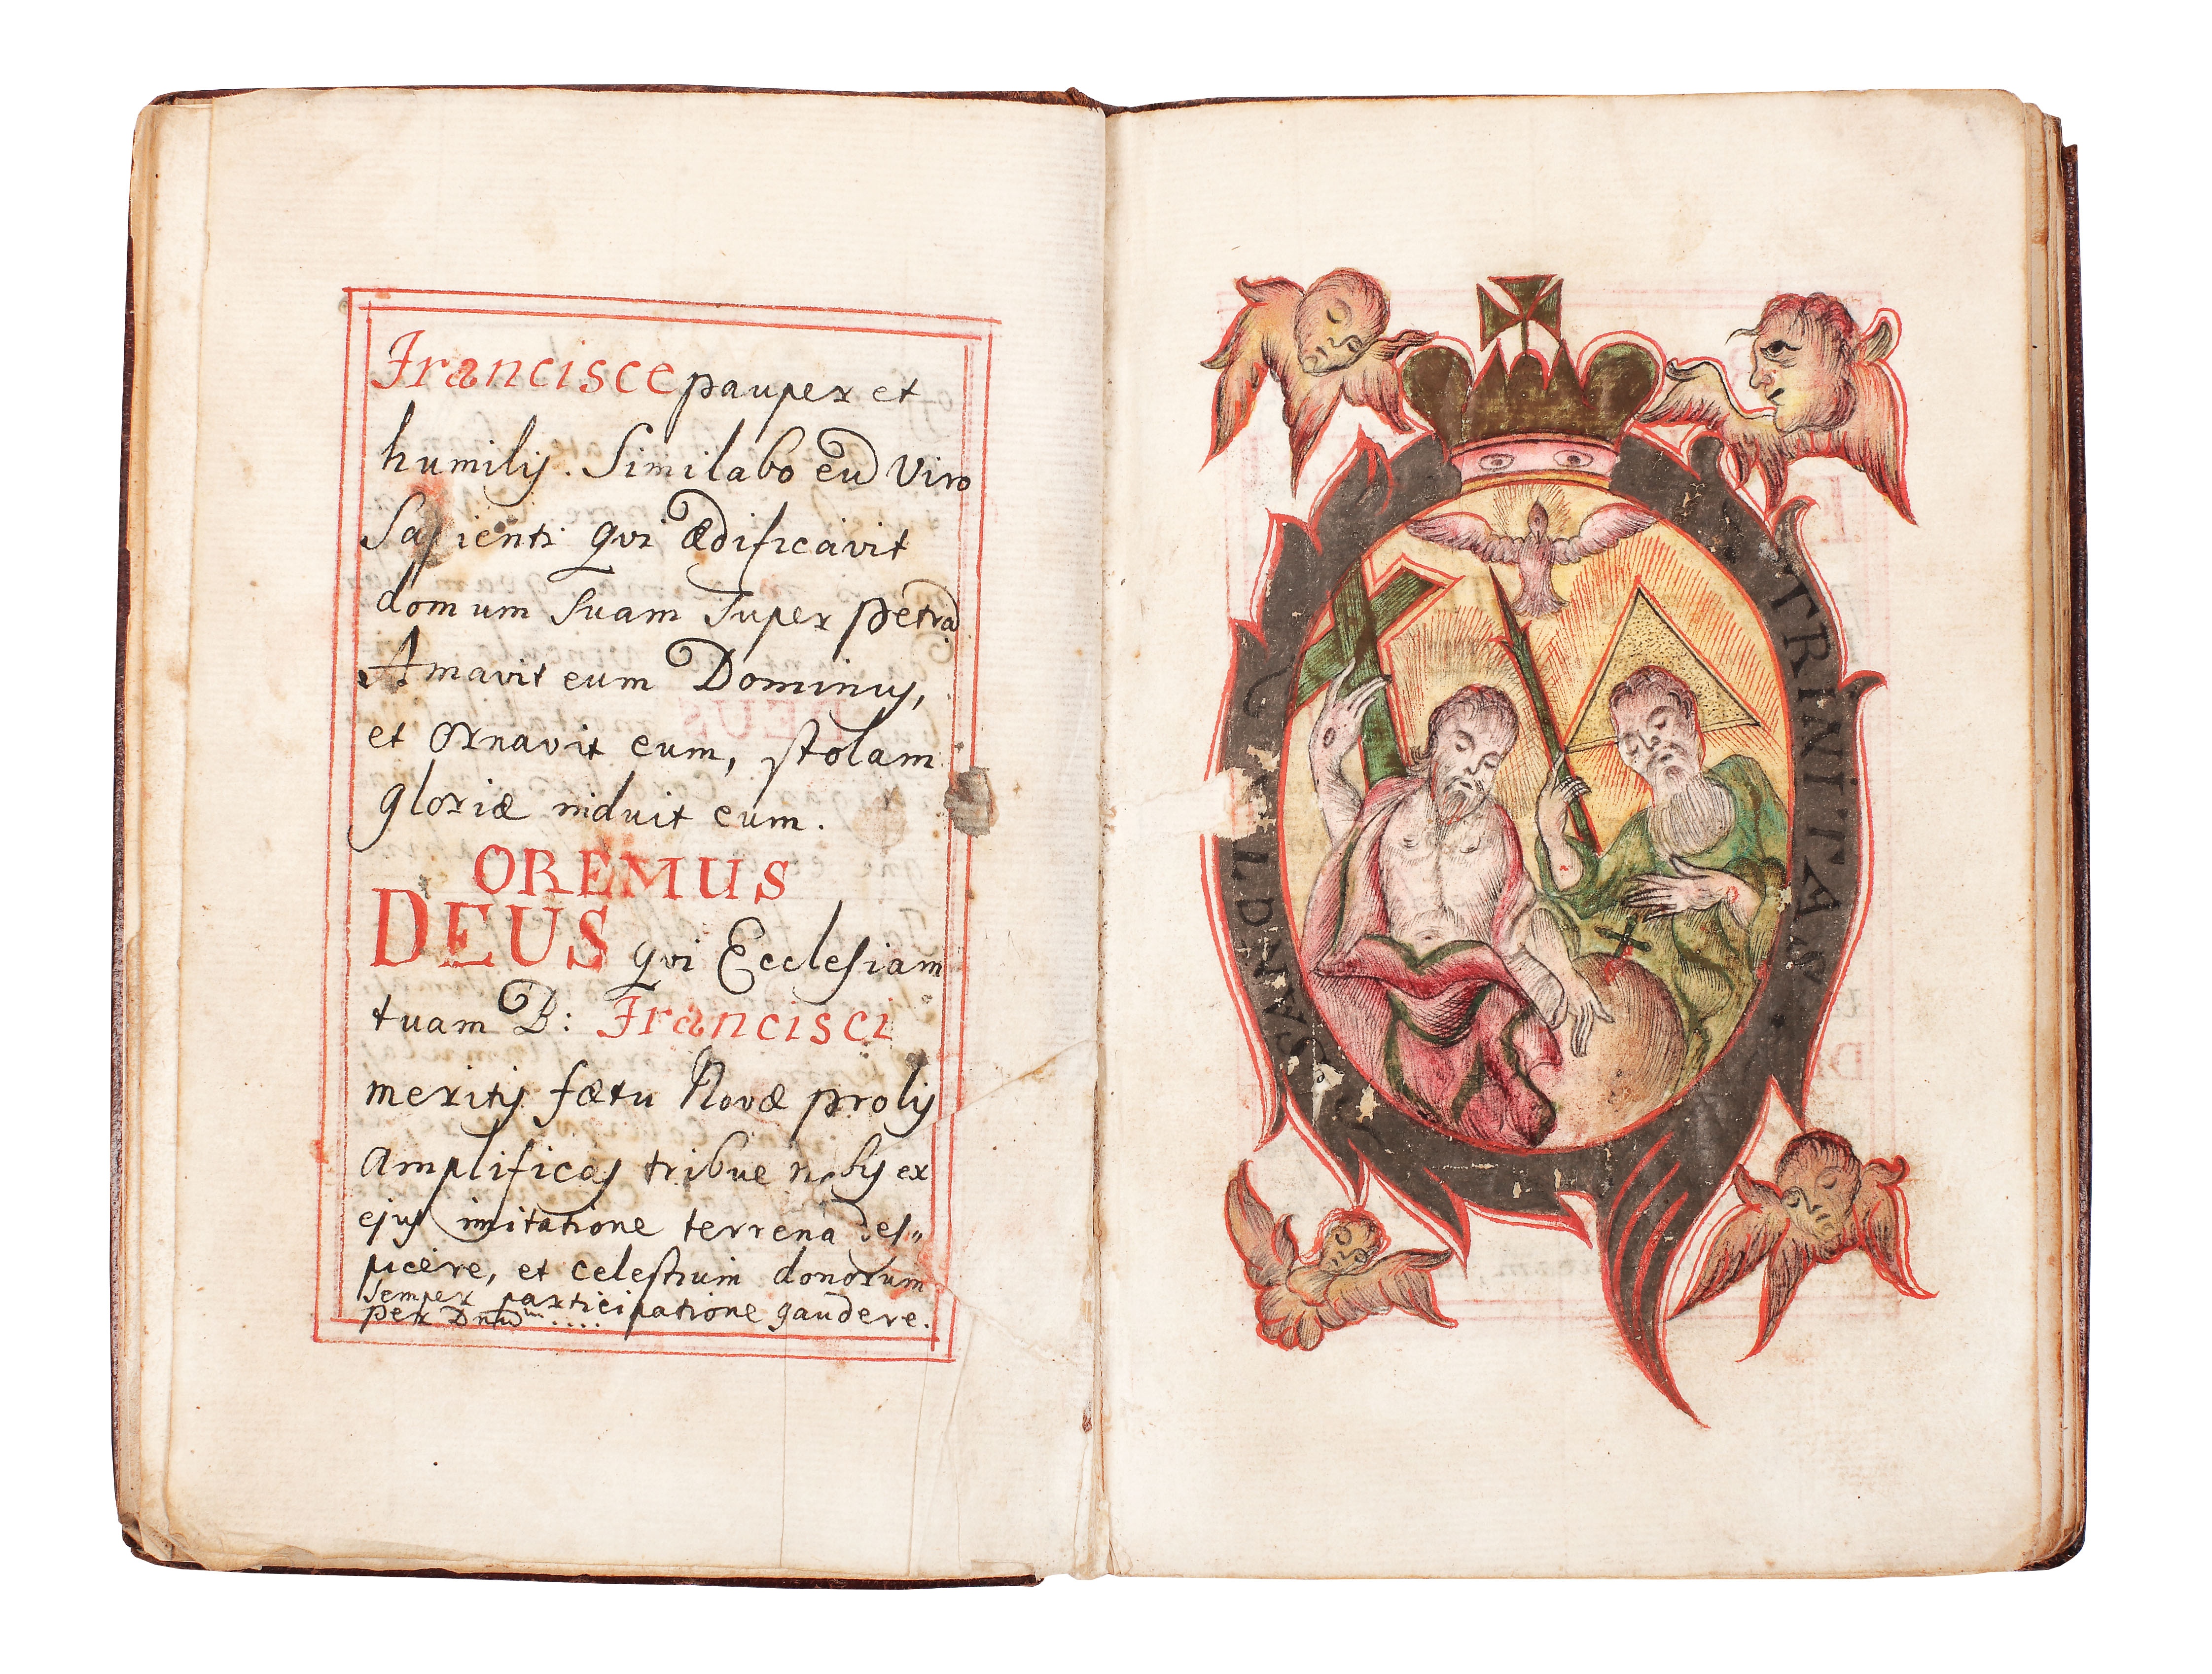 Francisce pauper et
humilis. Similabo eũ Viro
Sapienti qvi ædificavit
domum suam super petrã
Amavit eum Dominus,
et ornavit eum, stolam
gloriæ induit eum.
OREMUS
DEUS qvi Ecclesiam
tuam B: Francisci
meritis fætu Novæ prolis
amplificas tribue nobis ex
ejus imitatione terrena des„
picere, et celestium donorum
semper participatione gaudere.
per Dnũm....
SANCTA
TRINITAS